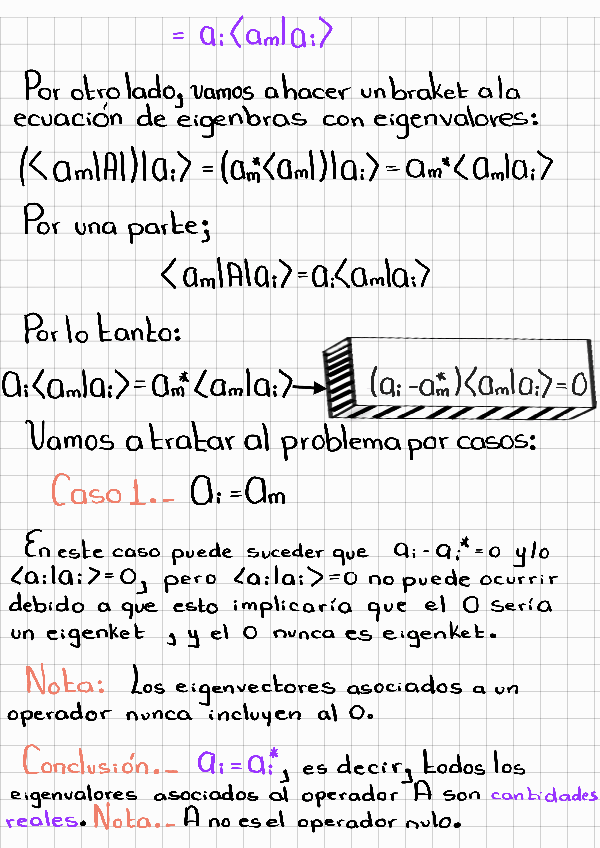 = aᵢ⟨aₘ|aᵢ⟩
Por otro lado, vamos a hacer un braket a la
ecuación de eigenbras con eigenvalores:
(⟨aₘ|A|)|aᵢ⟩ = (aₘ*⟨aₘ|)|aᵢ⟩ = aₘ*⟨aₘ|aᵢ⟩
Por una parte;
⟨aₘ|A|aᵢ⟩ = aᵢ⟨aₘ|aᵢ⟩
Por lo tanto:
aᵢ⟨aₘ|aᵢ⟩ = aₘ*⟨aₘ|aᵢ⟩ → (aᵢ - aₘ*)⟨aₘ|aᵢ⟩ = 0
Vamos a tratar al problema por casos:
Caso 1.- aᵢ = aₘ
En este caso puede suceder que aᵢ - aᵢ* = 0 y/o
⟨aᵢ|aᵢ⟩ = 0, pero ⟨aᵢ|aᵢ⟩ = 0 no puede ocurrir
debido a que esto implicaría que el 0 sería
un eigenket, y el 0 nunca es eigenket.
Nota: Los eigenvectores asociados a un
operador nunca incluyen al 0.
Conclusión.- aᵢ = aᵢ*, es decir, todos los
eigenvalores asociados al operador A son cantidades
reales. Nota.- A no es el operador nulo.